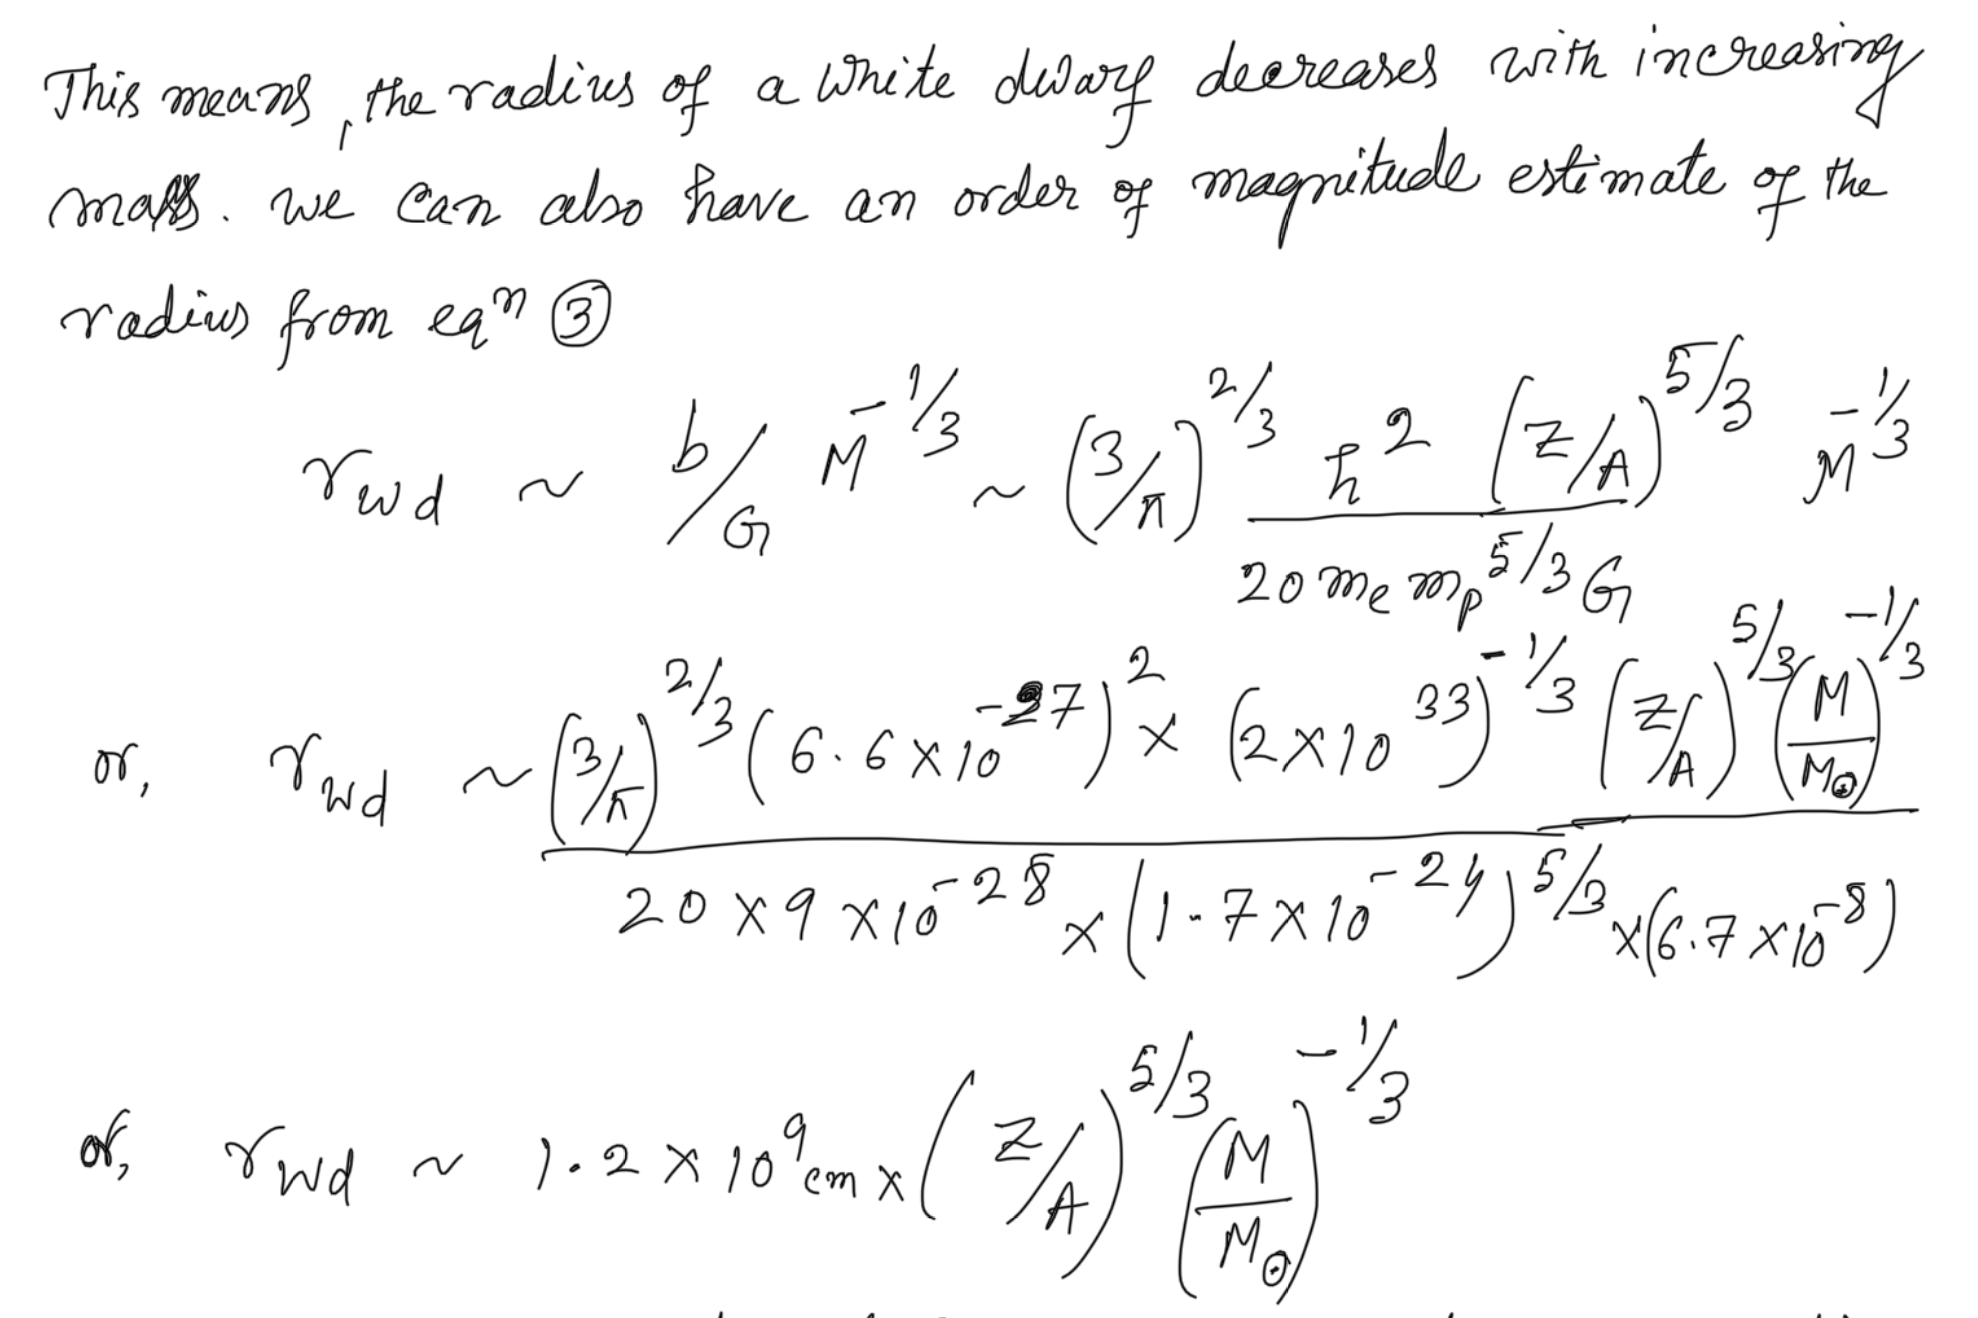 This means, the radius of a White dwarf decreases with increasing
mass. we can also have an order of magnitude estimate of the
radius from eqⁿ ③
r_wd ~ b/G M^(-1/3) ~ (3/π)^(2/3) ħ² (Z/A)^(5/3) / (20 m_e m_p^(5/3) G) M^(-1/3)
or, r_wd ~ (3/π)^(2/3) (6.6×10^(-27))² × (2×10^33)^(-1/3) (Z/A)^(5/3) (M/M_⊙)^(-1/3) / (20×9×10^(-28) × (1.7×10^(-24))^(5/3) × (6.7×10^(-8)))
or, r_wd ~ 1.2×10⁹ cm × (Z/A)^(5/3) (M/M_⊙)^(-1/3)